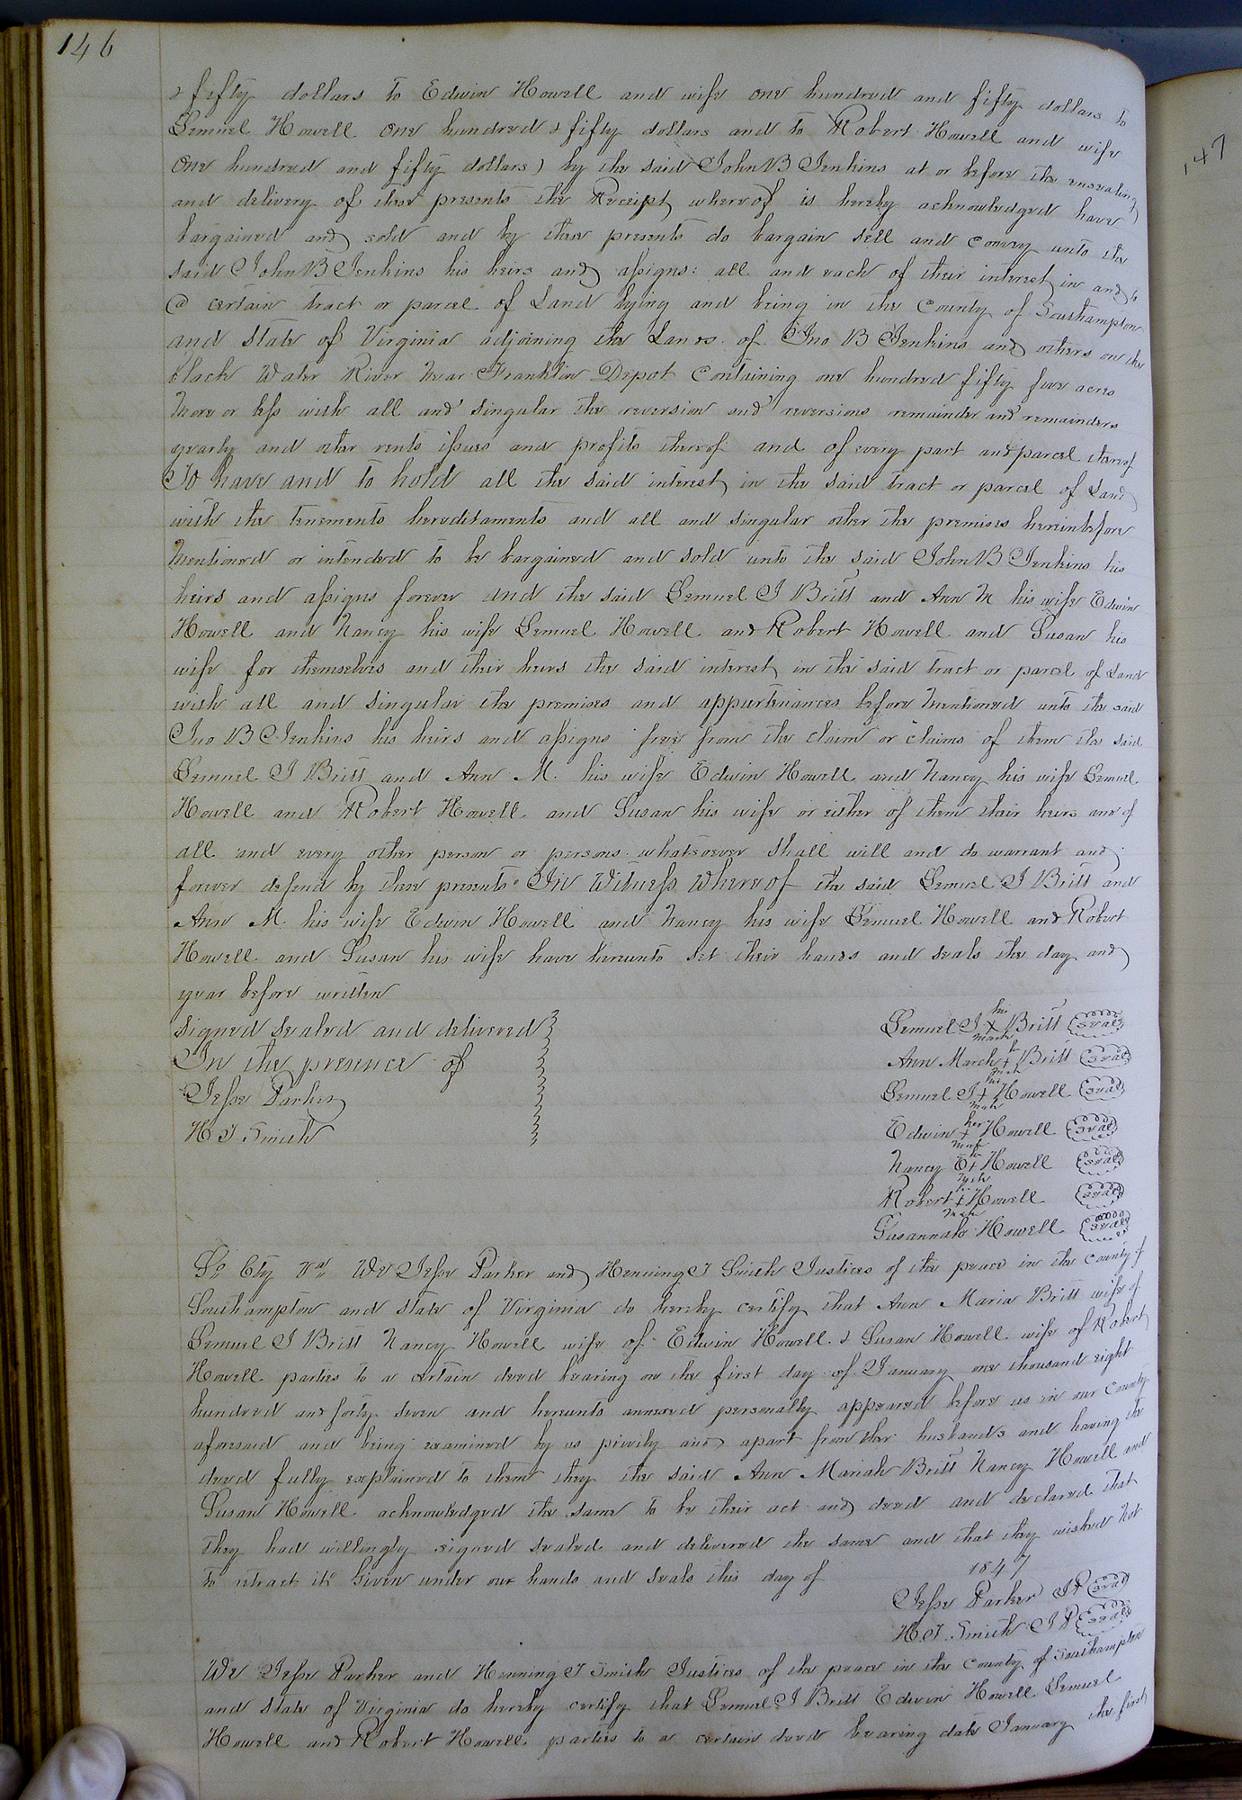 146
& fifty dollars to Edwin Howell and wife one hundred and fifty dollars to
Lemuel Howell one hundred & fifty dollars and to Robert Howell and wife
One hundred and fifty dollars) by the said John B Jenkins at or before the ensealing
and delivery of these presents the Receipt whereof is hereby acknowledged have
bargained and sold and by these presents do bargain sell and convey unto the
said John B Jenkins his heirs and assigns: all and each of their interest in and to
a certain tract or parcel of Land lying and being in the County of Southampton
and State of Virginia adjoining the Lands of Jno B Jenkins and others on the
black Water River Near Franklin Depot Containing one hundred fifty five acres
More or less with all and singular the reversion and reversions remainder and remainders
yearly and other rents issues and profits thereof and of every part and parcel thereof
To have and to hold all the said interest in the said tract or parcel of Land
with the tenements hereditaments and all and singular other the premises hereinbefore
Mentioned or intended to be bargained and sold unto the said John B Jenkins his
heirs and assigns forever and the said Lemuel J Britt and Ann M his wife Edwin
Howell and Nancy his wife Lemuel Howell and Robert Howell and Susan his
wife for themselves and their heirs the said interest in the said tract or parcel of Land
with all and singular the premises and appurtenances before Mentioned unto the said
Jno B Jenkins his heirs and assigns free from the claim or claims of them the said
Lemuel J Britt and Ann M. his wife Edwin Howell and Nancy his wife Lemuel
Howell and Robert Howell and Susan his wife or either of them their heirs and of
all and every other person or persons whatsoever shall will and do warrant and
forever defend by these presents In Witness Whereof the said Lemuel J Britt and
Ann M. his wife Edwin Howell and Nancy his wife Lemuel Howell and Robert
Howell and Susan his wife have hereunto set their hands and seals the day and
year before written
Signed Sealed and delivered
In the presence of
Jesse Parker
H J Smith
his
Lemuel J X Britt Seal
mark
Ann March + Britt Seal
his
Lemuel J + Howell Seal
mark
her
Edwin + Howell Seal
mark
Nancy E + Howell Seal
Robert + Howell Seal
Susannah Howell Seal
So Cty Va We Jesse Parker and Henning J Smith Justices of the peace in the County of
Southampton and State of Virginia do hereby certify that Ann Maria Britt wife of
Lemuel J Britt Nancy Howell wife of Edwin Howell & Susan Howell wife of Robert
Howell parties to a certain deed bearing on the first day of January one thousand eight
hundred and forty seven and hereunto annexed personally appeared before us in our County
aforesaid and being examined by us privily and apart from their husbands and having the
deed fully explained to them they the said Ann Mariah Britt Nancy Howell and
Susan Howell acknowledged the same to be their act and deed and declared that
they had willingly signed sealed and delivered the same and that they wished not
to retract it Given under our hands and seals this day of 1847
Jesse Parker JP Seal
H J Smith JP Seal
We Jesse Parker and Henning J Smith Justices of the peace in the County of Southampton
and State of Virginia do hereby certify that Lemuel J Britt Edwin Howell Lemuel
Howell and Robert Howell parties to a certain deed bearing date January the first
147